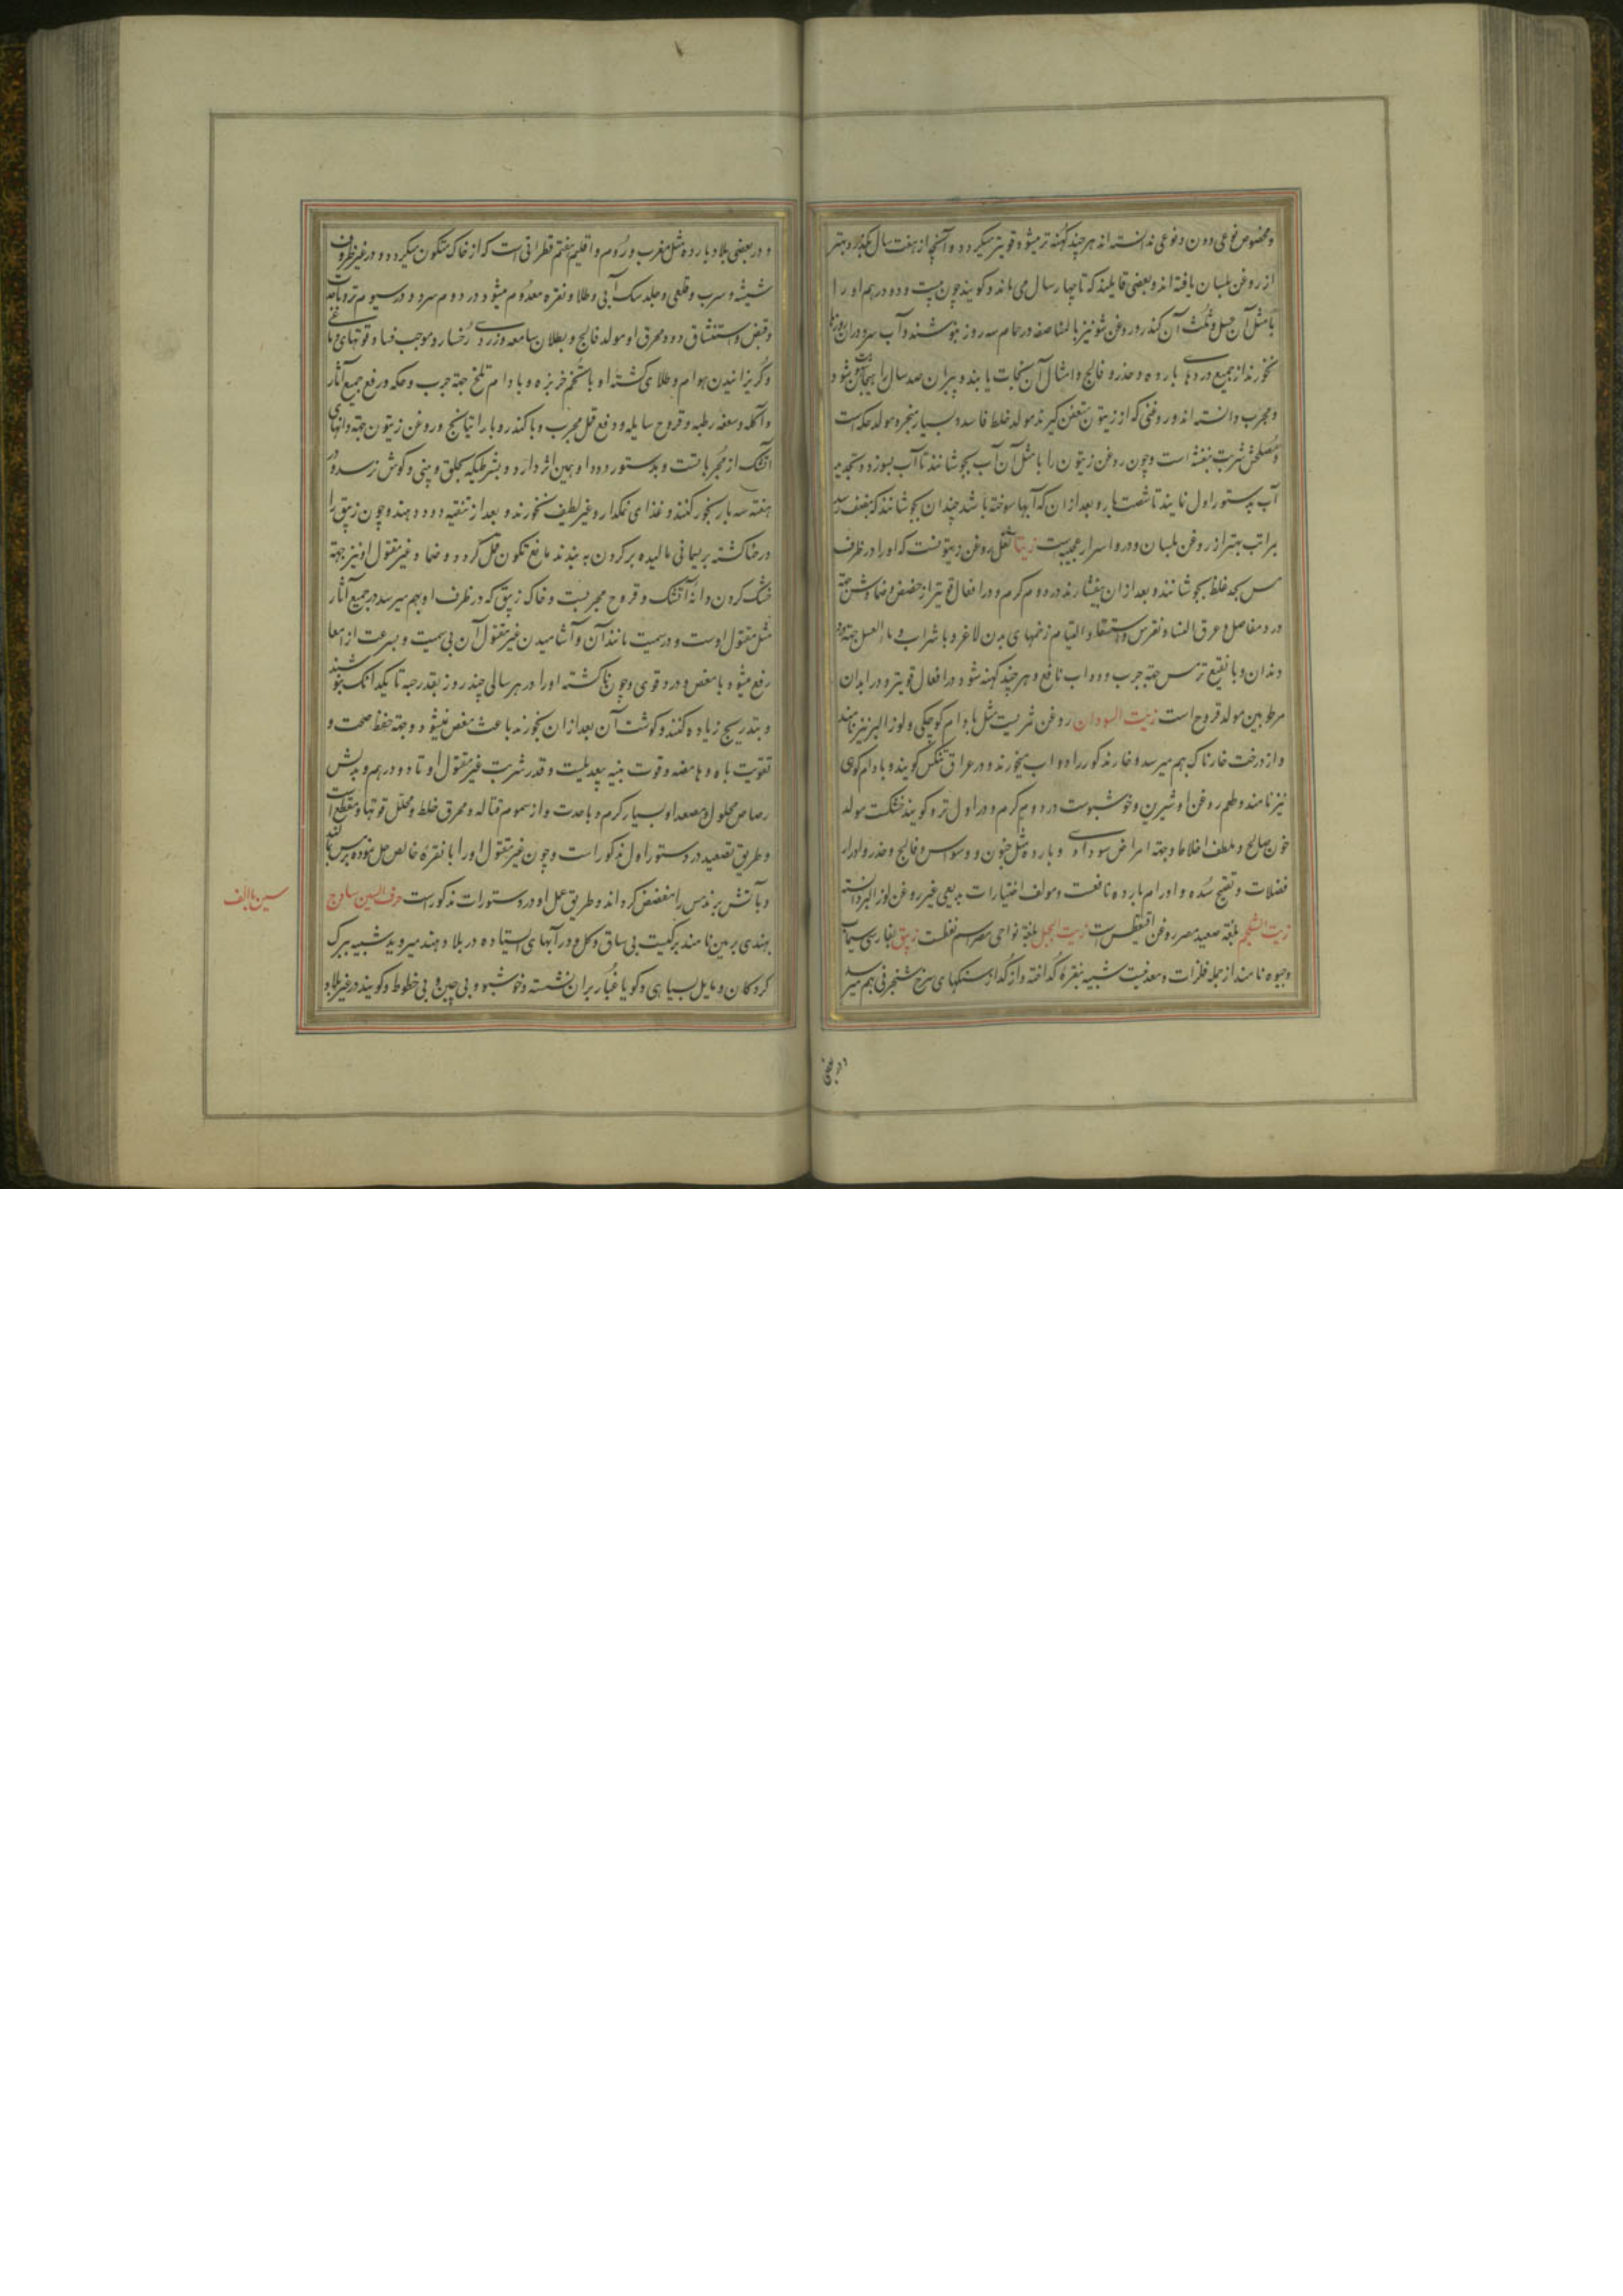 و مخصوص نوعی دون نوعی ندانسته اند هر چند کهنه تر میشود قویتر میگردد و آنچه از هفت سال بگذرد بهتر
از روغن بلسان یافته اند و بعضی قایلند که تا چهار سال می ماند و گویند چون بیست و دو درهم او را
با مثل آن عسل و ثلث آن کندر و روغن شونیز بالمناصفه در حمام سه روز بنوشند و آب سرد در آن روزها
نخورند از جمیع دردهای بارده و خدر و فالج و امثال آن نجات یابند و پیران صد سال را هیجان شود
و مجرب دانسته اند و روغنی که از زیتون متعفن گیرند مولد خلط فاسد و بسیار مبخر و مولد حکه است
و مصلحش شربت بنفشه است و چون روغن زیتون را با مثل آن آب بجوشانند تا آب بسوزد و تجدید
آب بدستور اول نمایند تا شصت بار و بعد از آن که آبها سوخته باشد چندان بجوشانند که بنصف رسد
بمراتب بهتر از روغن بلسان و در او اسرار عجیبه است زیتا ثفل روغن زیتونست که او را در ظرف
مس بحد غلظ بجوشانند و بعد از آن بیفشارند در دوم گرم و در افعال قویتر از حضض و ضماد کهنه اش جهة
درد مفاصل و عرق النسا و نقرس و استسقا و التیام زخمهای بدن لاغر و با شراب و ماء العسل جهة درد
دندان و با نقیع ترمس جهة جرب دواب نافع و هر چند کهنه شود در افعال قویتر و در ابدان
مرطوبین مولد قروح است زیت السودان روغن ثمریست مثل بادام کوچکی و لوز البر نیز نامند
و از درخت خارناک بهم میرسد و خار مذکور را دواب میخورند و در عراق تنگس گویند و بادام کوهی
نیز نامند و طعم روغن او شیرین و خوشبوست در دوم گرم و در اول تر و گویند خشکست مولد
خون صالح و ملطف اخلاط و جهة امراض سوداوی و بارده مثل جنون و وسواس و فالج و خدر و ادرار
فضلات و تفتیح سده و اورام بارده نافعست و مولف اختیارات بدیعی غیر روغن لوز البر دانسته
زیت الشلجم بلغة صعید مصر روغن اقیطس است زیت الجبل بلغة نواحی مصر اسم نفطست زیبق بفارسی سیماب
و جیوه نامند از جمله فلزات و معدنیست شبیه بنقره گداخته و از گداز سنگهای سرخ شنجرفی بهم میرسد
در بعضی
و در بعضی بلاد بارده مثل مغرب و روم و اقلیم هفتم قطراتی است که از خاک متکون میگردد و در غیر ظروف
شیشه و سرب و قلعی و جلد سگ آبی و طلا و نقره معدوم میشود در دوم سرد و در سیوم تر و با حدت
و قبض و استنشاق دود محرق او مولد فالج و بطلان سامعه و زردی رخسار و موجب فساد قوتهای دماغی
و گریزانیدن هوام و طلای کشته او با تخم خربزه و بادام تلخ جهة جرب و حکه و رفع جمیع آثار
و آکله و سعفه رطبه و قروح سایله و دفع قمل مجرب و با کندر و با راتیانج و روغن زیتون جهة دانهای
آتشک از مجرباتست و بدستور دود او همین اثر دارد و بشرطیکه بحلق و بینی و گوش نرسد و در
هفته سه بار بخور کنند و غذای نمکدار و غیر لطیف نخورند و بعد از تنقیه دود دهند و چون زیبق را
در حنا کشته بریسمانی مالیده بر گردن به بندند مانع تکون قمل گردد و ضماد غیر مقتول او نیز جهة
خشک کردن دانه آتشک و قروح مجربست و خاک زیبق که در ظرف او بهم میرسد در جمیع آثار
مثل مقتول اوست و در سمیت مانند آن و آشامیدن غیر مقتول آن بی سمیت و بسرعت از معا
رفع میشود با مغص و درد قوی و چون ناکشته او را در هر سالی چند روز بقدر حبه تا یکدانک بنوشند
و بتدریج زیاده کنند و گوشت آن بعد از آن بخورند باعث مغص نمیشود و جهة حفظ صحت و
تقویت باه و هاضمه و قوت بنیه بیعدیلست و قدر شربت غیر مقتول او تا دو درهم و بدلش
رصاص محلول و مصعد او بسیار گرم و با حدت و از سموم قتاله و محرق خلط و محلل قوتها و مقطع است
و طریق تصعید در دستور اول مذکور است و چون غیر مقتول او را با نقره خالص حل نموده بر مس بمالند
و بآتش برند مس را مفضض گرداند و طریق عمل او در دستورات مذکور است حرف السین سادج
بهندی برمین نامند برگیست بی ساق و گل و در آبهای ایستاده در بلاد هند میروید شبیه ببرگ
گردکان و مایل بسیاهی و گویا غبار بر آن نشسته و خوشبو و بی چین و بی خطوط و گویند در غیر بلاد
سین با الف